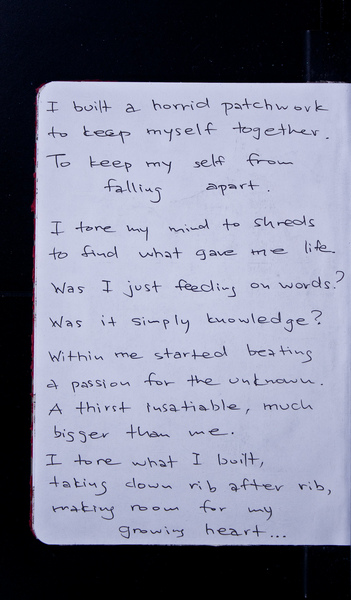 I built a horrid patchwork
to keep myself together.
To keep my self from
falling apart.
I tore my mind to shreds
to find what gave me life.
Was I just feeding on words?
Was it simply knowledge?
Within me started beating
a passion for the unknown.
A thirst insatiable, much
bigger than me.
I tore what I built,
taking down rib after rib,
making room for my
growing heart...